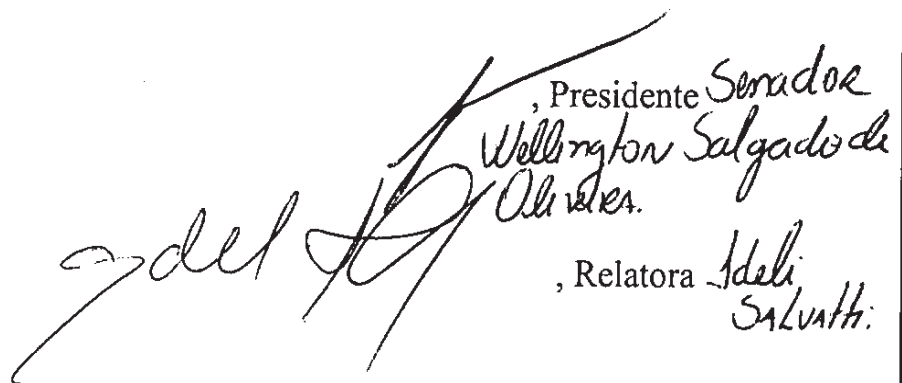 , Presidente Senador
Wellington Salgado de
Oliveira.
, Relatora Ideli
SALVATTI.